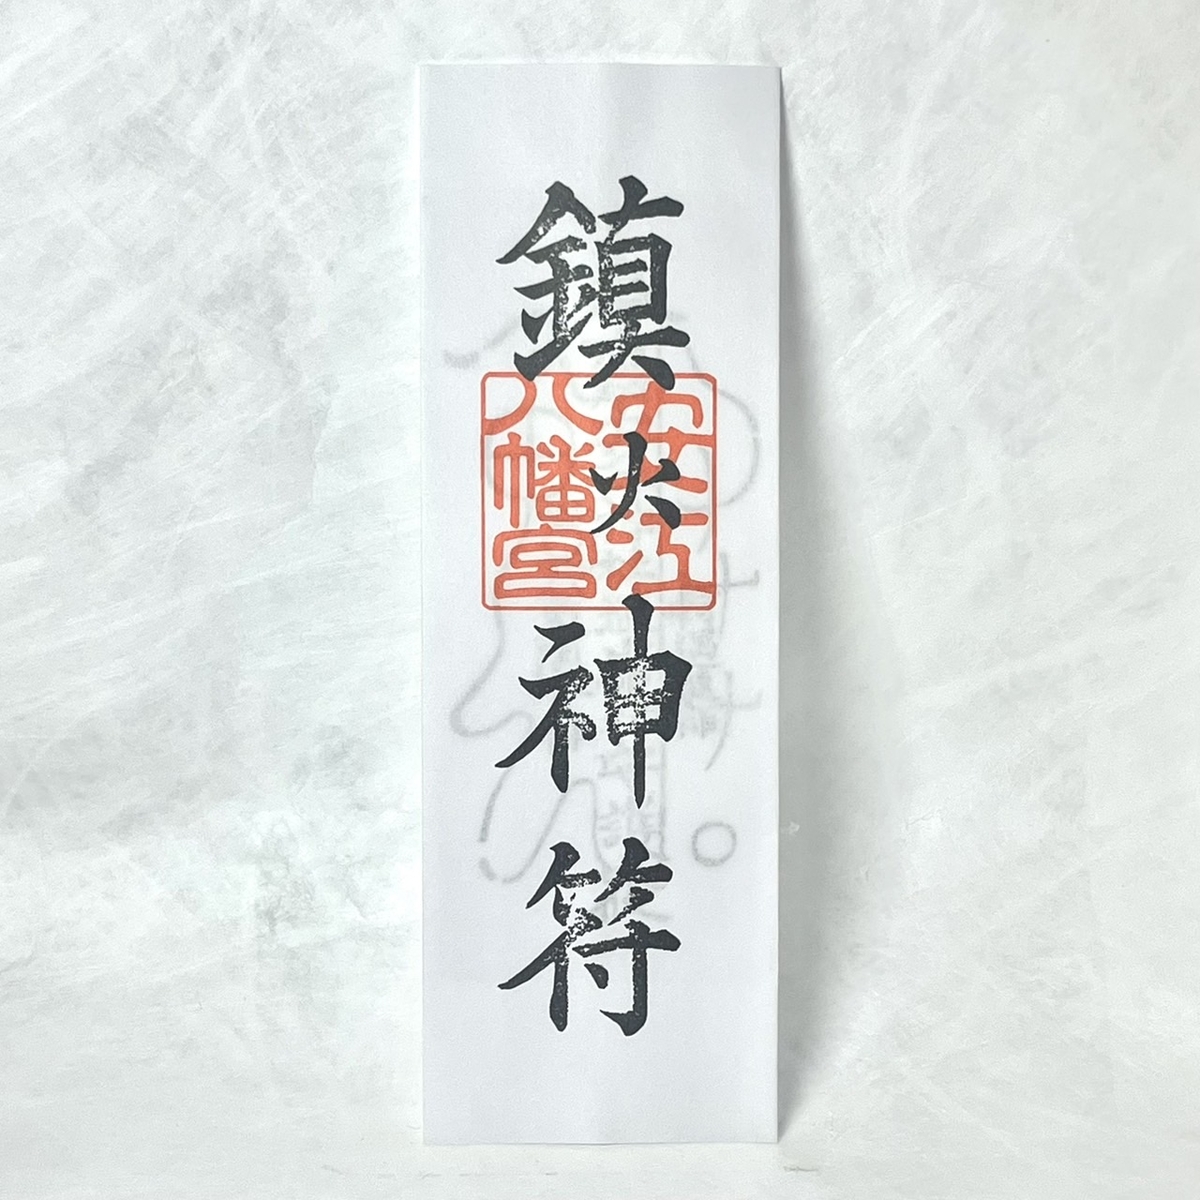 鎮火神符
安江
八幡宮